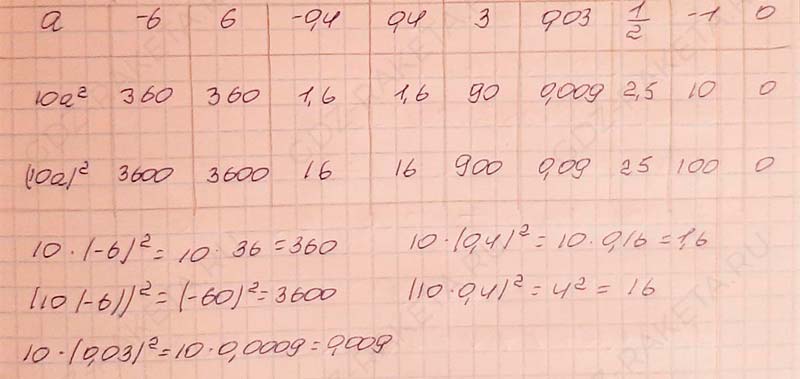 a -6 6 -0,4 0,4 3 0,03 1/2 -1 0
10a² 360 360 1,6 1,6 90 0,009 2,5 10 0
(10a)² 3600 3600 16 16 900 0,09 25 100 0
10·(-6)²= 10·36 =360 10·(0,4)²= 10·0,16 = 1,6
(10(-6))²= (-60)²= 3600 (10·0,4)²= 4² = 16
10·(0,03)²= 10·0,0009= 0,009